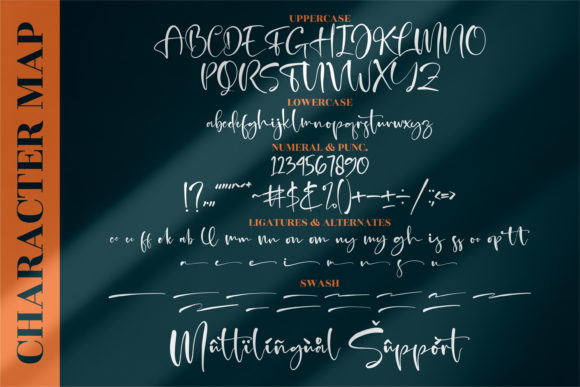 CHARACTER MAP
UPPERCASE
ABCDEFGHIJKLMNO
PQRSTUVWXYZ
LOWERCASE
abcdefghijklmnopqrstuvwxyz
NUMERAL & PUNC.
1234567890
!?,,""''"~*~#$&%()+−±÷/:;<=>
LIGATURES & ALTERNATES
ff ok ab ll mm nn on om ny my gh is ss oo op tt
a e c i m n s u
SWASH
Múttïlíñgùål Šûppórt